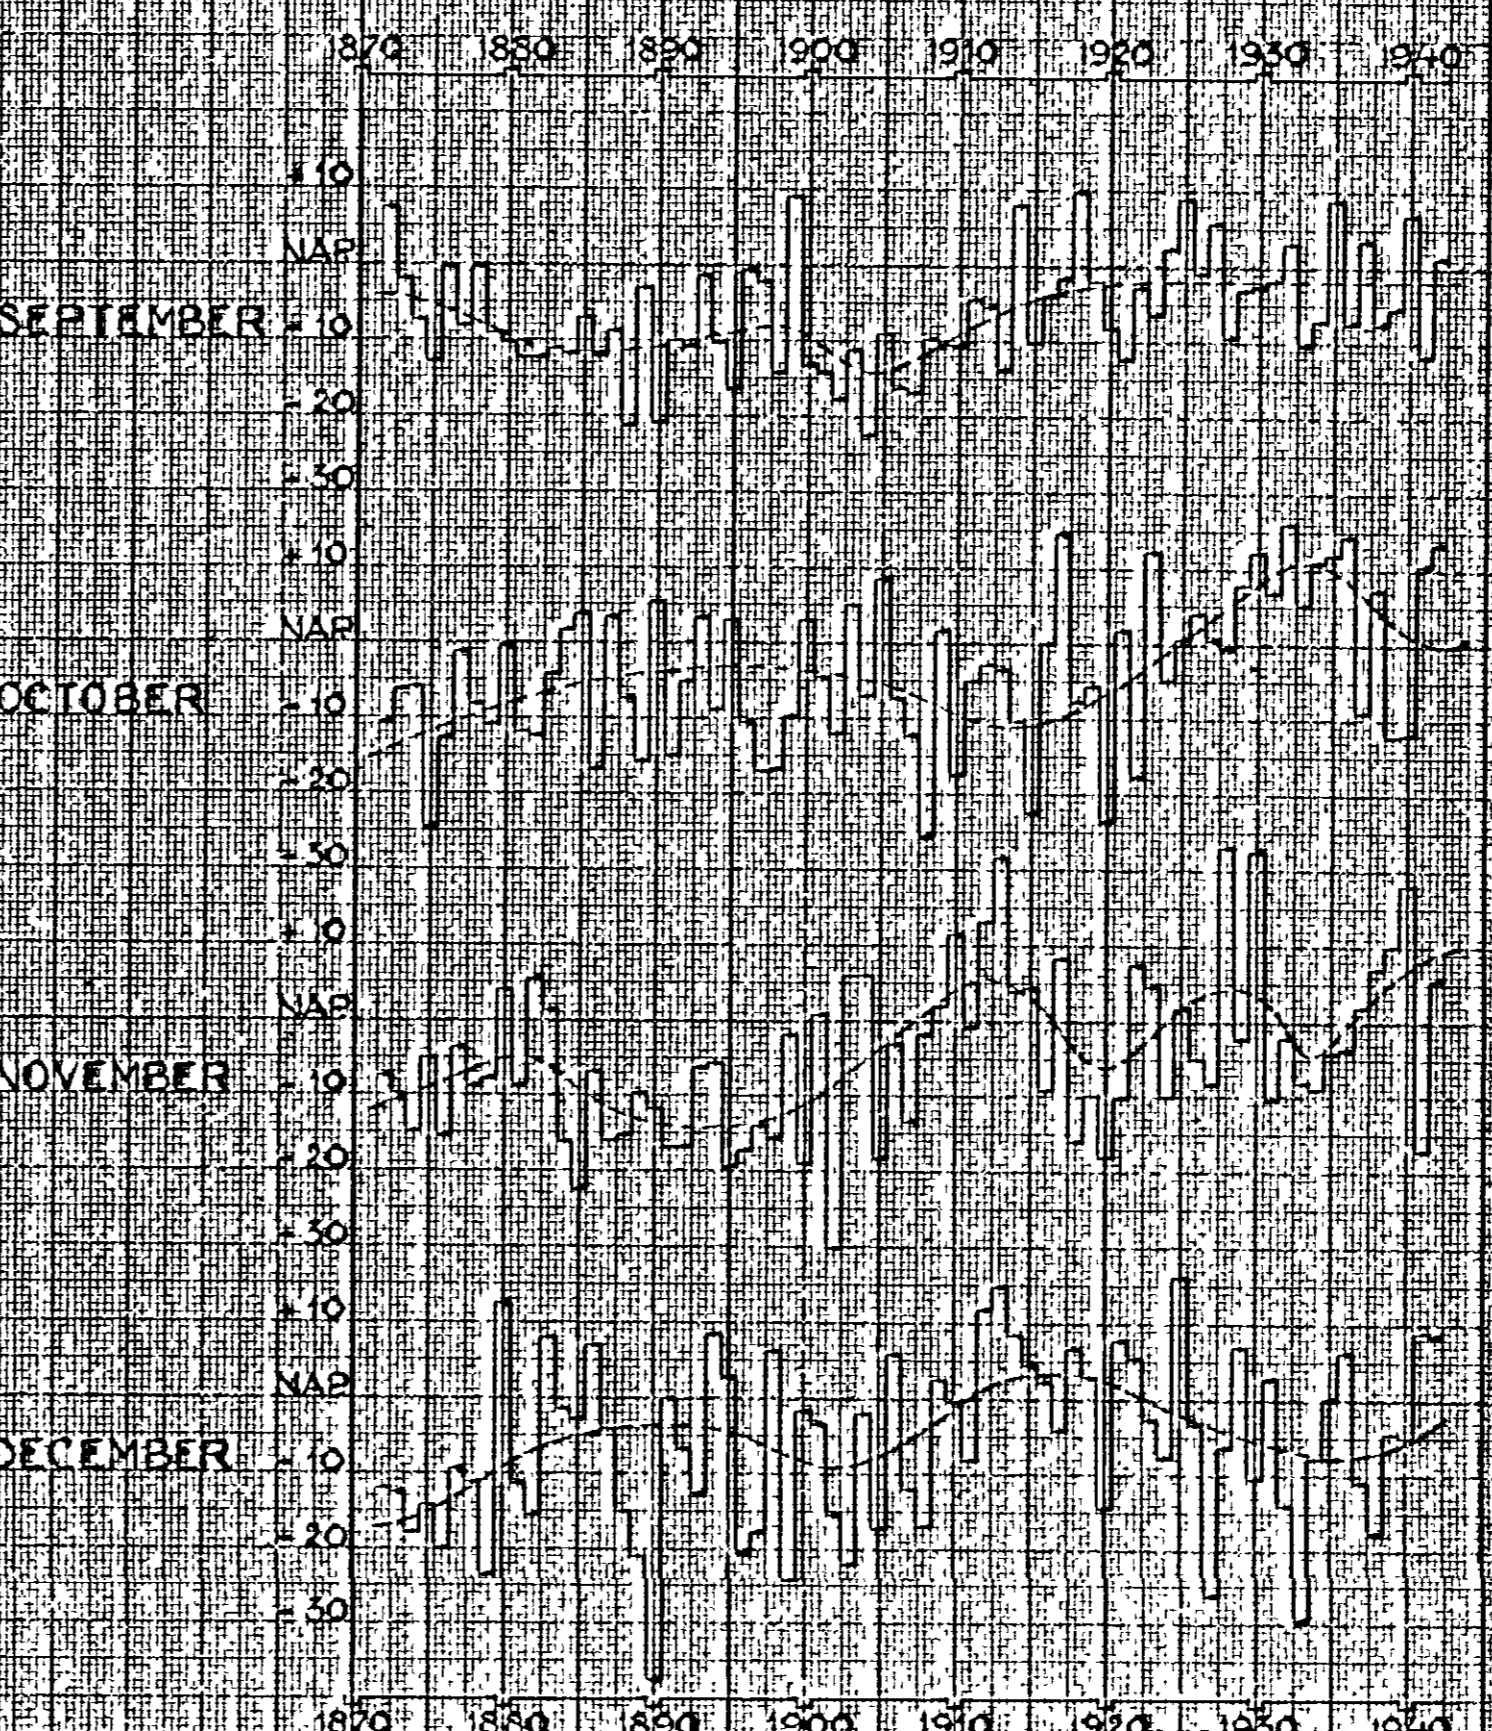 1870 1880 1890 1900 1910 1920 1930 1940
+ 10
NAP
SEPTEMBER - 10
- 20
- 30
+ 10
NAP
OCTOBER - 10
- 20
- 30
+ 10
NAP
NOVEMBER - 10
- 20
- 30
+ 10
NAP
DECEMBER - 10
- 20
- 30
1870 1880 1890 1900 1910 1920 1930 1940